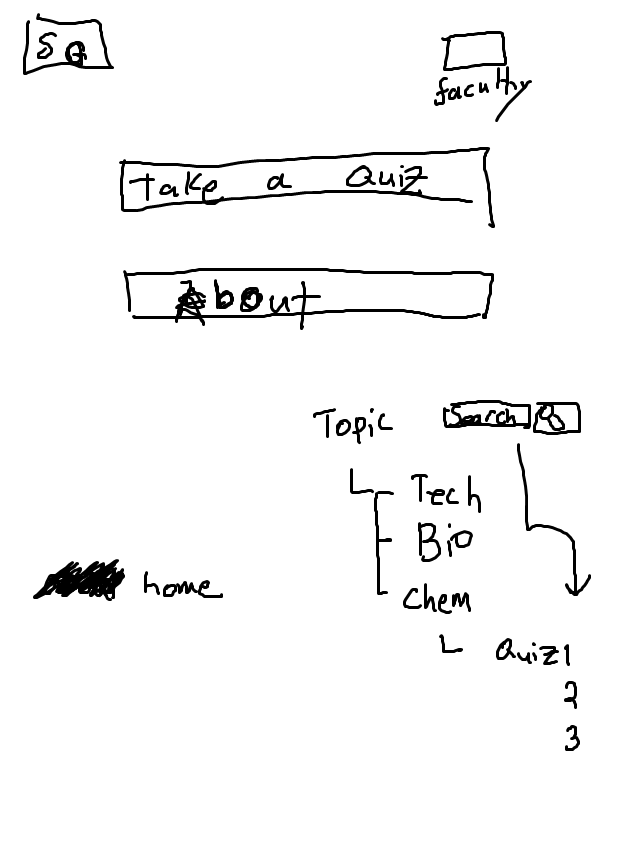 SQ
faculty
Take a Quiz
About
Topic Search
Tech
Bio
home
Chem
Quiz1
2
3